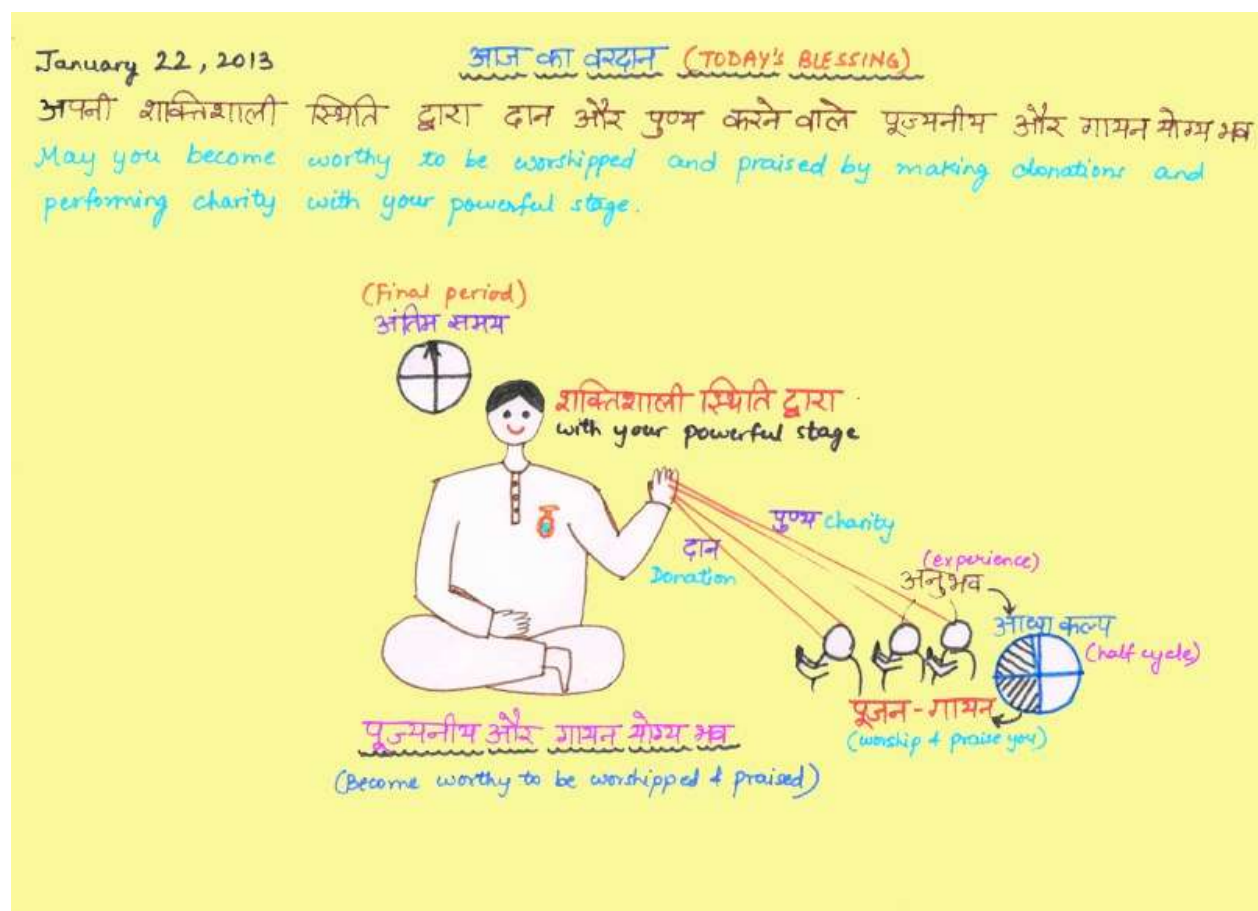 January 22, 2013
आज का वरदान (TODAY'S BLESSING)
अपनी शक्तिशाली स्थिति द्वारा दान और पुण्य करने वाले पूज्यनीय और गायन योग्य भव
May you become worthy to be worshipped and praised by making donations and
performing charity with your powerful stage.
(Final period)
अंतिम समय
शक्तिशाली स्थिति द्वारा
with your powerful stage
पुण्य charity
दान
Donation
(experience)
अनुभव
आधा कल्प
(half cycle)
पूजन-गायन
(worship & praise you)
पूज्यनीय और गायन योग्य भव
(Become worthy to be worshipped & praised)